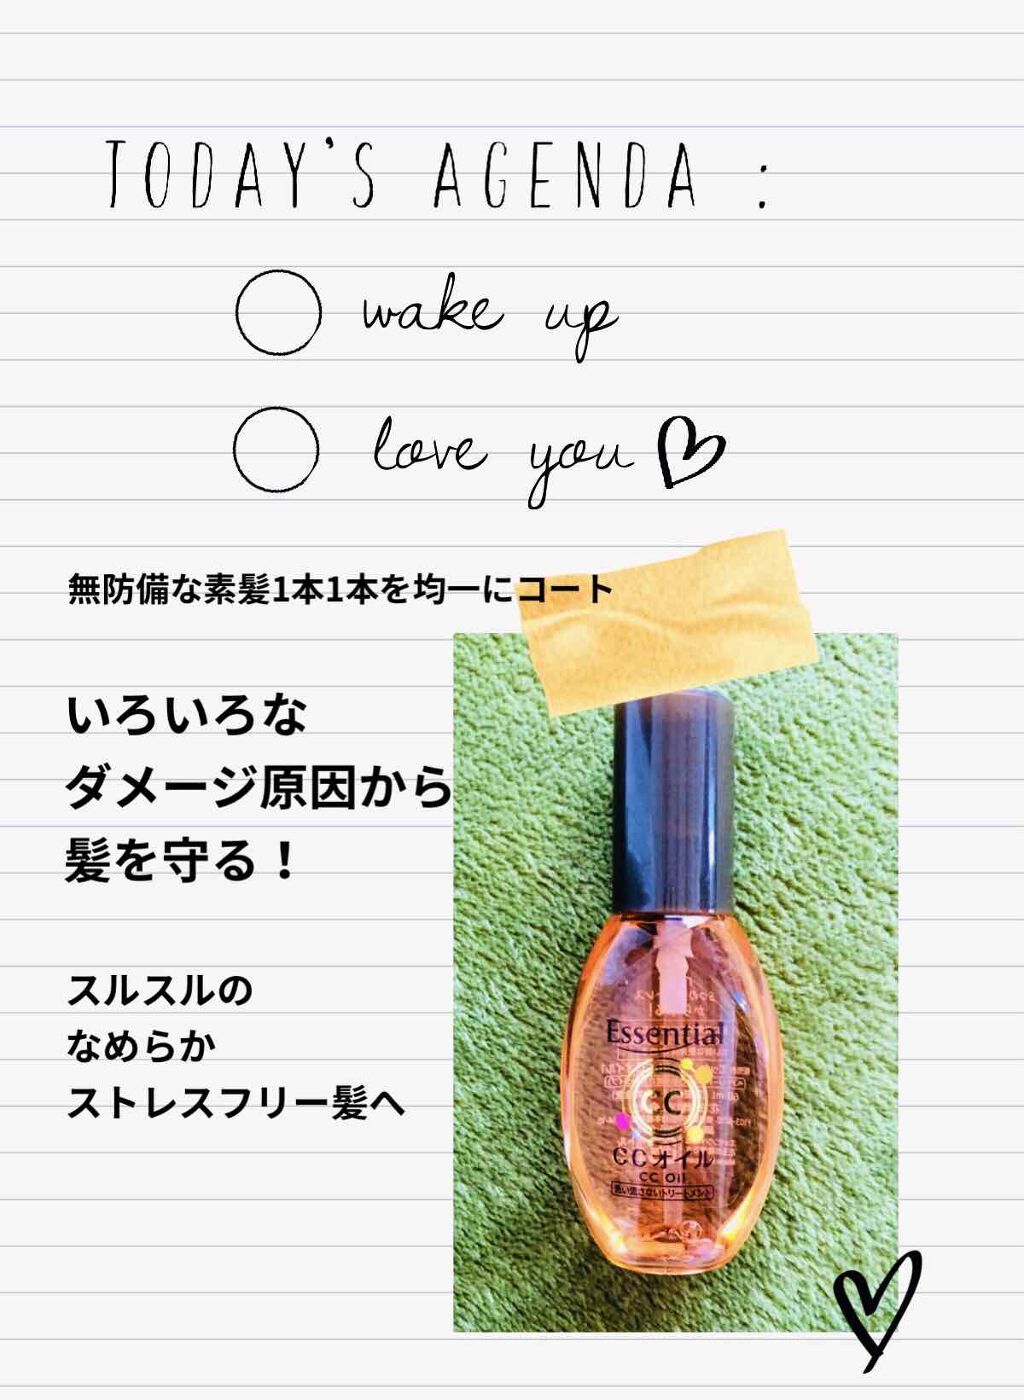 TODAY'S AGENDA :
wake up
love you
無防備な素髪1本1本を均一にコート
いろいろな
ダメージ原因から
髪を守る！
スルスルの
なめらか
ストレスフリー髪へ
Essential
CC
CCオイル
CC Oil
洗い流さないトリートメント